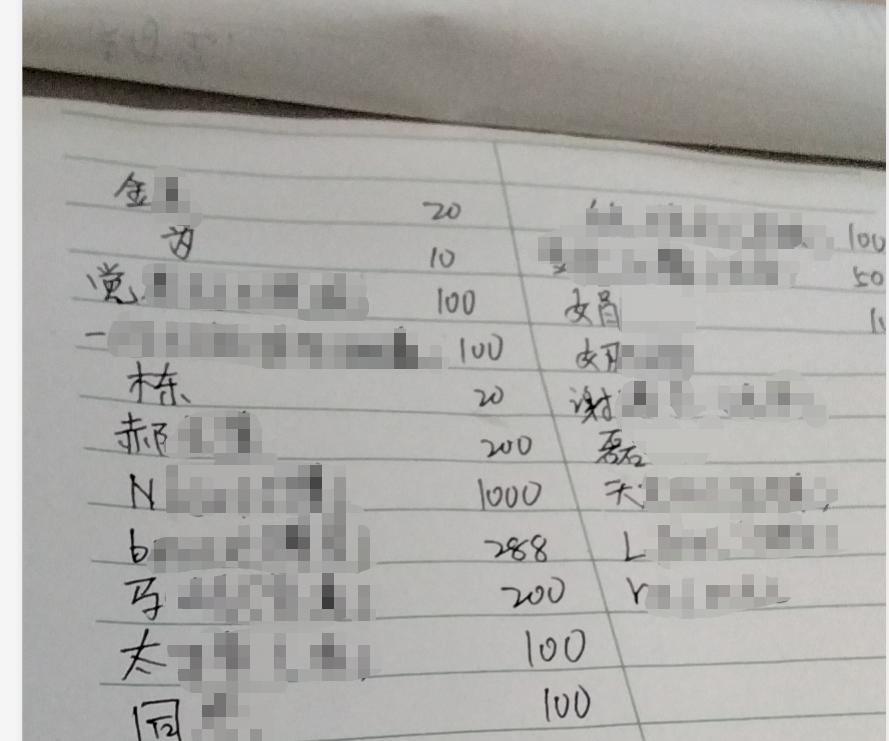 金 20
为 10
觉 100
一 100
栋 20
郝 200
N 1000
b 288
马 200
太 100
100
100
50
娟
谢
磊
天
L
Y